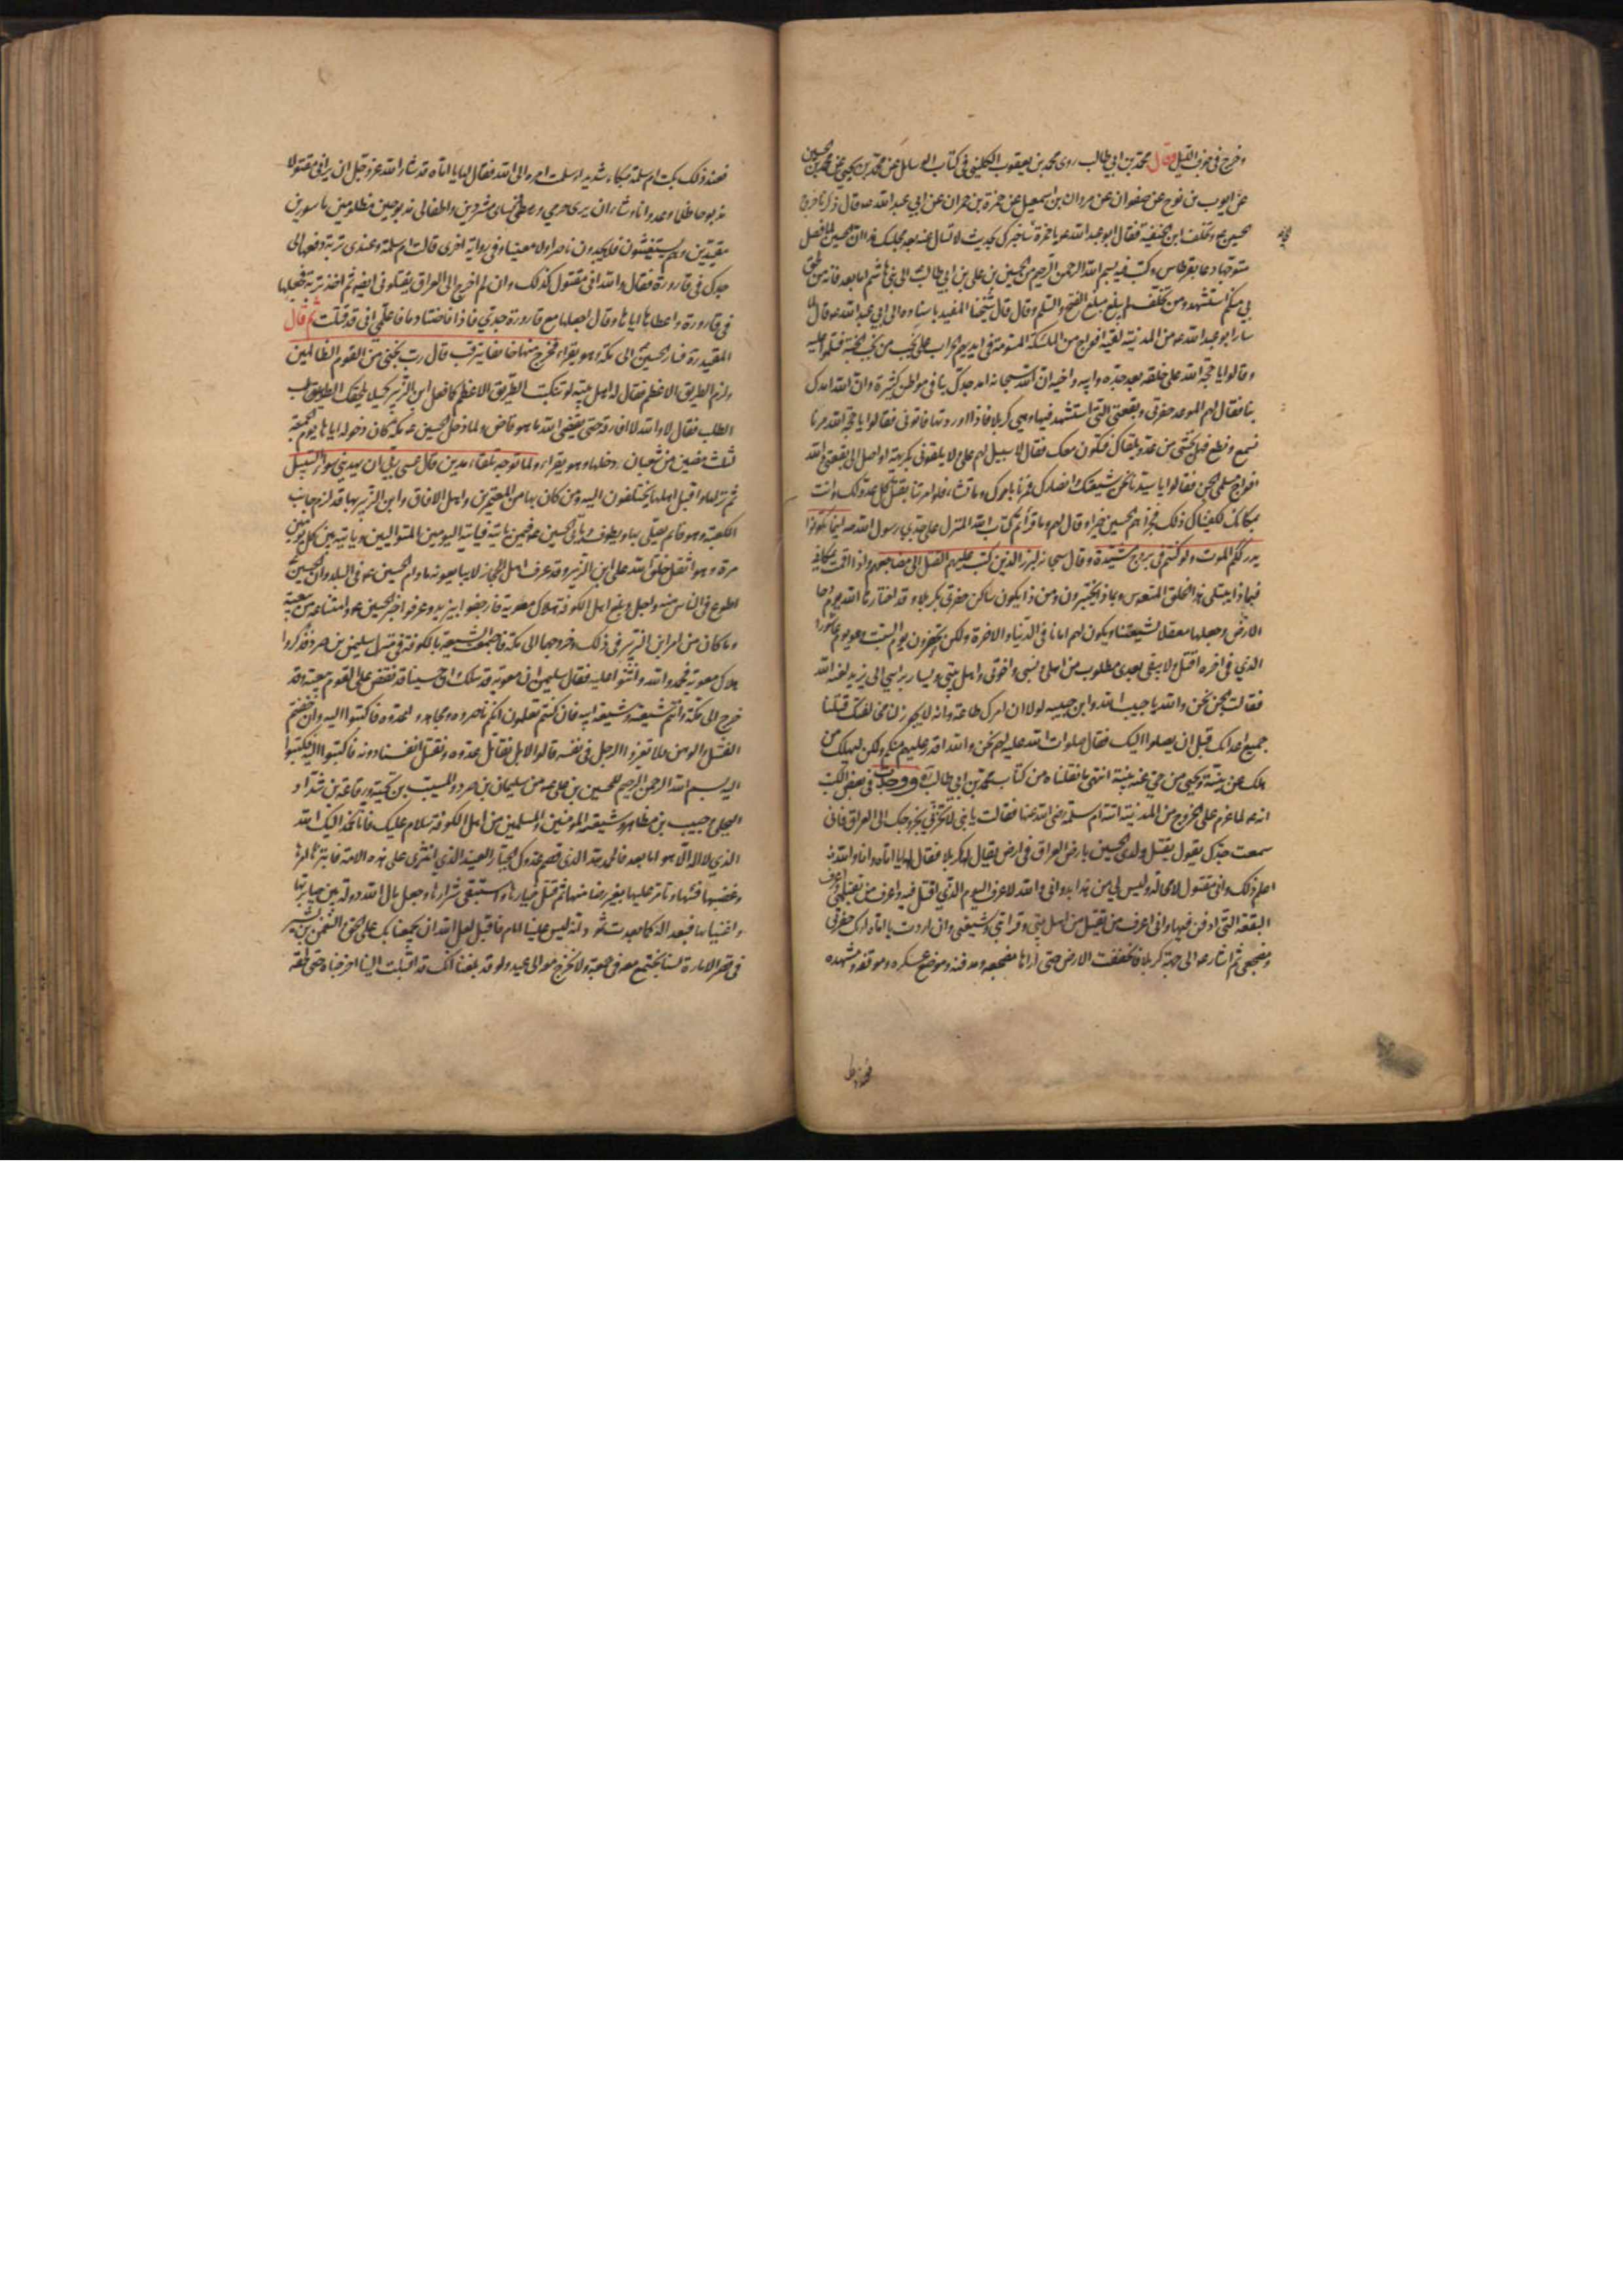 وخرج في جوف الليل وقال محمد بن ابي طالب روى محمد بن يعقوب الكليني في كتاب الرسائل عن محمد بن يحيى عن محمد بن الحسين
عن ايوب بن نوح عن صفوان عن مروان بن اسمعيل عن حمزة بن حمران عن ابي عبد الله ع قال ذكرنا خروج
الحسين ع وتخلف ابن الحنفية فقال ابو عبد الله ع يا حمزة ساخبرك بحديث لا تسال عنه بعد مجلسك هذا ان الحسين لما فصل
متوجها دعا بقرطاس وكتب فيه بسم الله الرحمن الرحيم من الحسين بن علي بن ابي طالب الى بني هاشم اما بعد فانه من لحق
بي منكم استشهد ومن تخلف لم يبلغ مبلغ الفتح والسلم وقال قال شيخنا المفيد باسناده الى ابي عبد الله ع قال لما
سار ابو عبد الله ع من المدينة لقيه افواج من الملئكة المسومة في ايديهم الحراب على نجب من نجب الجنة فسلموا عليه
وقالوا يا حجة الله على خلقه بعد جده وابيه واخيه ان الله سبحانه امد جدك بنا في مواطن كثيرة وان الله امدك
بنا فقال لهم الموعد حفرتي وبقعتي التي استشهد فيها وهي كربلا فاذا وردتها فاتوني فقالوا يا حجة الله مرنا
نسمع ونطع فهل تخشى من عدو يلقاك فنكون معك فقال لا سبيل لهم علي ولا يلقوني بكريهة او اصل الى بقعتي واتته
افواج مسلمي الجن فقالوا يا سيدنا نحن شيعتك وانصارك فمرنا بامرك وما تشاء فلو امرتنا بقتل كل عدو لك وانت
بمكانك لكفيناك ذلك فجزاهم الحسين خيرا وقال لهم اوما قراتم كتاب الله المنزل على جدي رسول الله ص اينما تكونوا
يدرككم الموت ولو كنتم في بروج مشيدة وقال سبحانه لبرز الذين كتب عليهم القتل الى مضاجعهم واذا اقمت بمكاني
فبماذا يبتلى هذا الخلق المتعوس وبماذا يختبرون ومن ذا يكون ساكن حفرتي بكربلا وقد اختارها الله يوم دحا
الارض وجعلها معقلا لشيعتنا ويكون لهم امانا في الدنيا والاخرة ولكن تحضرون يوم السبت وهو يوم عاشورا
الذي في اخره اقتل ولا يبقى بعدي مطلوب من اهلي ونسبي واخوتي واهل بيتي ويسار براسي الى يزيد لعنه الله
فقالت الجن نحن والله يا حبيب الله وابن حبيبه لولا ان امرك طاعة وانه لا يجوز لنا مخالفتك قتلنا
جميع اعدائك قبل ان يصلوا اليك فقال صلوات الله عليه لهم نحن والله اقدر عليهم منكم ولكن ليهلك من
هلك عن بينة ويحيى من حي عن بينة انتهى ما نقلناه من كتاب محمد بن ابي طالب ووجدت في بعض الكتب
انه ع لما عزم على الخروج من المدينة اتته ام سلمة رضي الله عنها فقالت يا بني لا تحزني بخروجك الى العراق فاني
سمعت جدك يقول يقتل ولدي الحسين بارض العراق في ارض يقال لها كربلا فقال لها يا اماه وانا والله
اعلم ذلك واني مقتول لا محالة وليس لي من هذا بد واني والله لاعرف اليوم الذي اقتل فيه واعرف من يقتلني واعرف
البقعة التي ادفن فيها واني اعرف من يقتل من اهل بيتي وقرابتي وشيعتي وان اردت يا اماه اريك حفرتي
ومضجعي ثم اشار ع الى جهة كربلا فانخفضت الارض حتى اراها مضجعه ومدفنه وموضع عسكره وموقفه ومشهده
فعند ذلك بكت ام سلمة بكاء شديدا وسلمت امره الى الله فقال لها يا اماه قد شاء الله عز وجل ان يراني مقتولا
مذبوحا ظلما وعدوانا وشاء ان يرى حرمي ورهطي ونسائي مشردين واطفالي مذبوحين مظلومين ماسورين
مقيدين وهم يستغيثون فلا يجدون ناصرا ولا معينا وفي رواية اخرى قالت ام سلمة وعندي تربة دفعها الي
جدك في قارورة فقال والله اني مقتول كذلك وان لم اخرج الى العراق يقتلوني ايضا ثم اخذ تربة فجعلها
في قارورة واعطاها اياها وقال اجعلها مع قارورة جدي فاذا فاضتا دما فاعلمي اني قد قتلت ثم قال
المفيد ره فسار الحسين ع الى مكة وهو يقرا فخرج منها خائفا يترقب قال رب نجني من القوم الظالمين
ولزم الطريق الاعظم فقال له اهل بيته لو تنكبت الطريق الاعظم كما فعل ابن الزبير كيلا يلحقك الطلب
فقال لا والله لا افارقه حتى يقضي الله ما هو قاض ولما دخل الحسين ع مكة كان دخوله اياها يوم الجمعة
لثلث مضين من شعبان دخلها وهو يقرا ولما توجه تلقاء مدين قال عسى ربي ان يهديني سواء السبيل
ثم نزلها واقبل اهلها يختلفون اليه ومن كان بها من المعتمرين واهل الافاق وابن الزبير بها قد لزم جانب
الكعبة وهو قائم يصلي بها ويطوف وياتي الحسين ع فيمن ياتيه فياتيه اليومين المتواليين وياتيه بين كل يومين
مرة وهو اثقل خلق الله على ابن الزبير وقد عرف ان اهل الحجاز لا يبايعونه ما دام الحسين ع في البلد وان الحسين
اطوع في الناس منه واجل وبلغ اهل الكوفة هلاك معوية فارجفوا بيزيد وعرفوا خبر الحسين ع وامتناعه من بيعته
وما كان من امر ابن الزبير في ذلك وخروجهما الى مكة فاجتمعت الشيعة بالكوفة في منزل سليمن بن صرد فذكروا
هلاك معوية فحمدوا الله واثنوا عليه فقال سليمن ان معوية قد هلك وان حسينا قد نقض على القوم ببيعته وقد
خرج الى مكة وانتم شيعته وشيعة ابيه فان كنتم تعلمون انكم ناصروه ومجاهدوا عدوه فاكتبوا اليه وان خفتم
الفشل والوهن فلا تغروا الرجل في نفسه قالوا لا بل نقاتل عدوه ونقتل انفسنا دونه فاكتبوا اليه فكتبوا
اليه بسم الله الرحمن الرحيم للحسين بن علي ع من سليمان بن صرد والمسيب بن نجية ورفاعة بن شداد
البجلي وحبيب بن مظاهر وشيعته المومنين والمسلمين من اهل الكوفة سلام عليك فانا نحمد اليك الله
الذي لا اله الا هو اما بعد فالحمد لله الذي قصم عدوك الجبار العنيد الذي انتزى على هذه الامة فابتزها امرها
وغصبها فيئها وتامر عليها بغير رضا منها ثم قتل خيارها واستبقى شرارها وجعل مال الله دولة بين جبابرتها
واغنيائها فبعدا له كما بعدت ثمود انه ليس علينا امام فاقبل لعل الله ان يجمعنا بك على الحق والنعمن بن بشير
في قصر الامارة لسنا نجتمع معه في جمعة ولا نخرج معه الى عيد ولو قد بلغنا انك قد اقبلت الينا اخرجناه حتى نلحقه